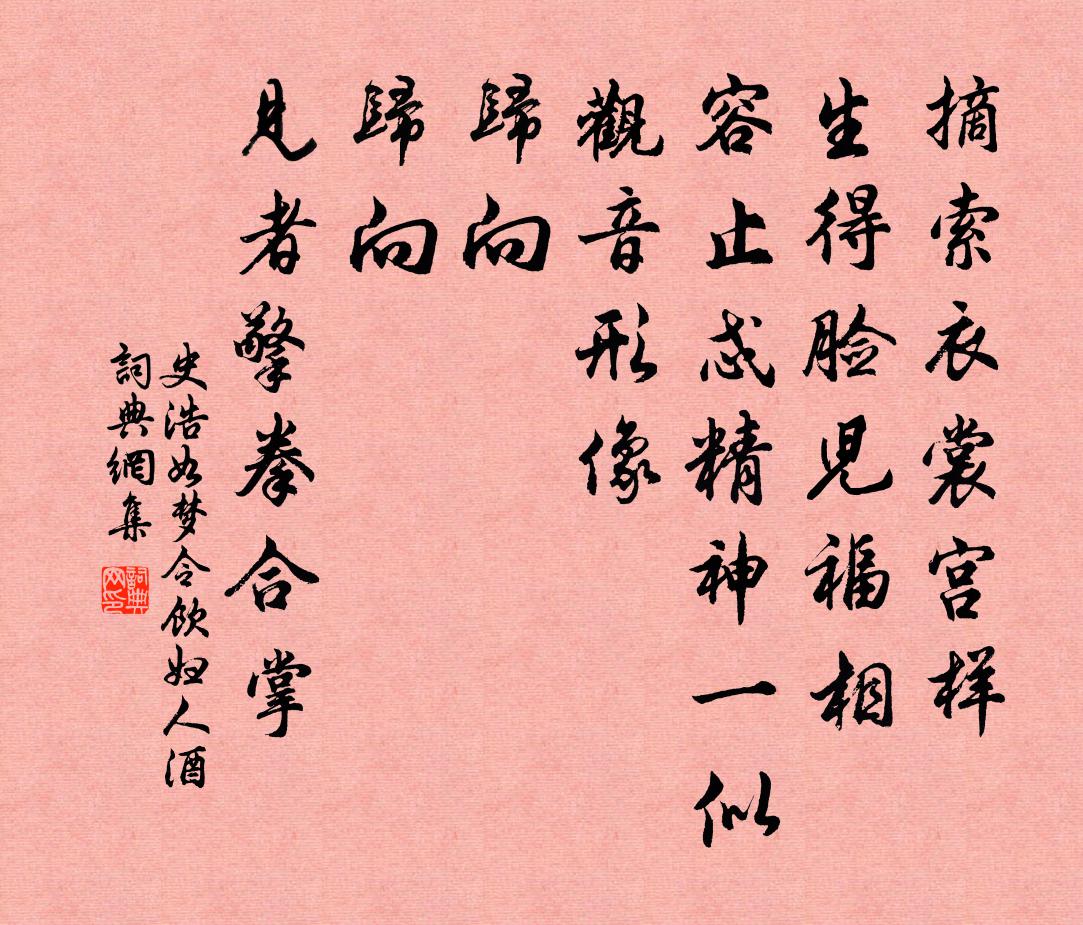 摘索衣裳宫样
生得脸儿福相
容止忒精神一似
觀音形像
歸向
歸向
見者擎拳合掌
史浩如梦令飲妇人酒
詞典網集
詞典网印